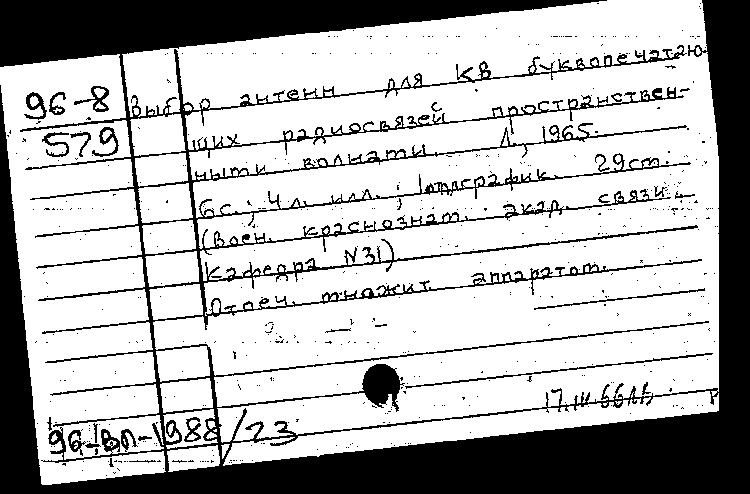 96-8
579
Выбор антенн для КВ буквопечатаю-
щих радиосвязей пространствен-
ными волнами. Л., 1965.
6 с.; 4 л. илл.; 1 л. график. 29 см.
(Воен. краснознам. акад. связи.
Кафедра N31)
Отпеч. множит. аппаратом.
96-ВП-1988/23